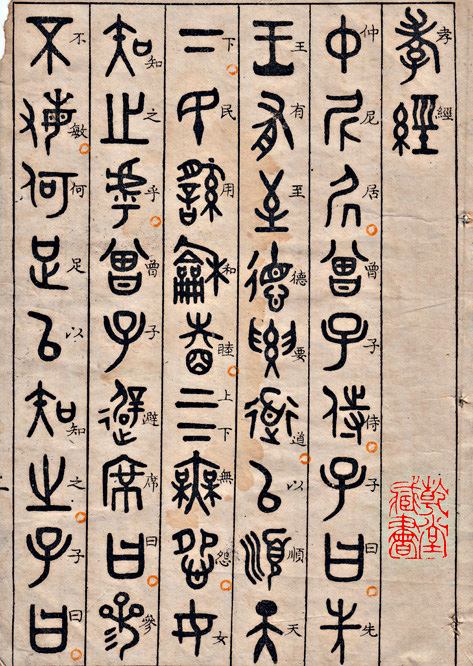 孝經
仲尼居曾子侍子曰先
王有至德要道以順天
下民用和睦上下無怨女
知之乎曾子避席曰參
不敏何足以知之子曰
乾堂
藏書